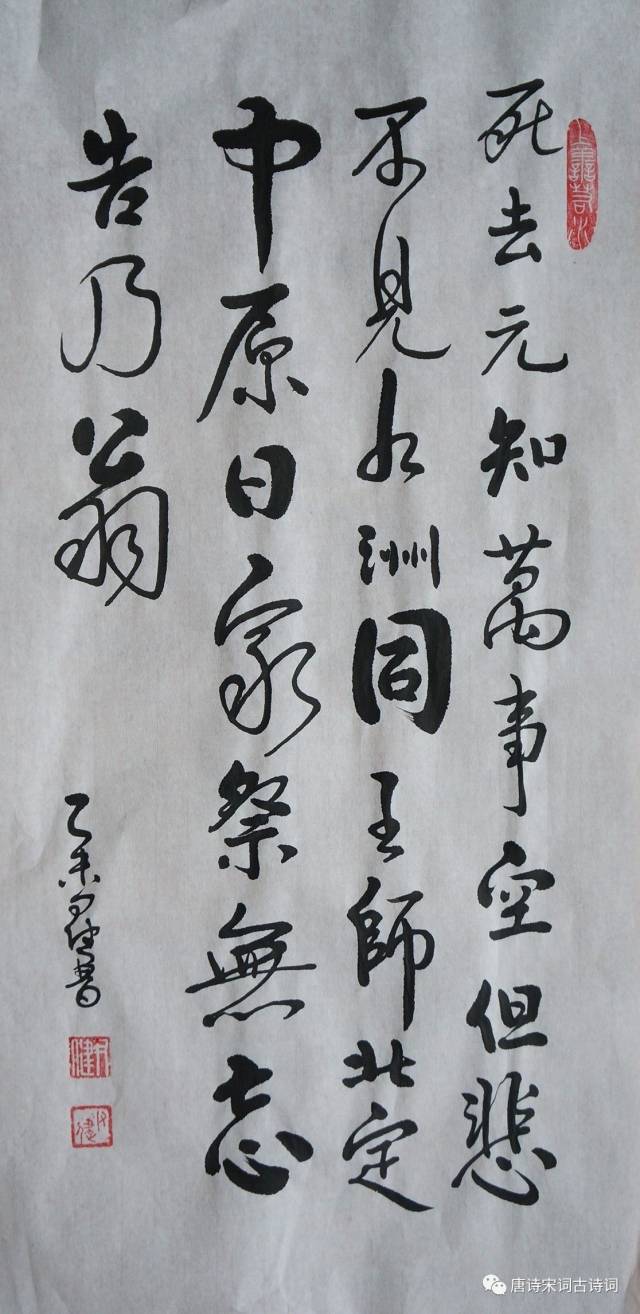 死去元知萬事空但悲
不見九州同王師北定
中原日家祭無忘
告乃翁
乙未
書
上善若水
唐诗宋词古诗词